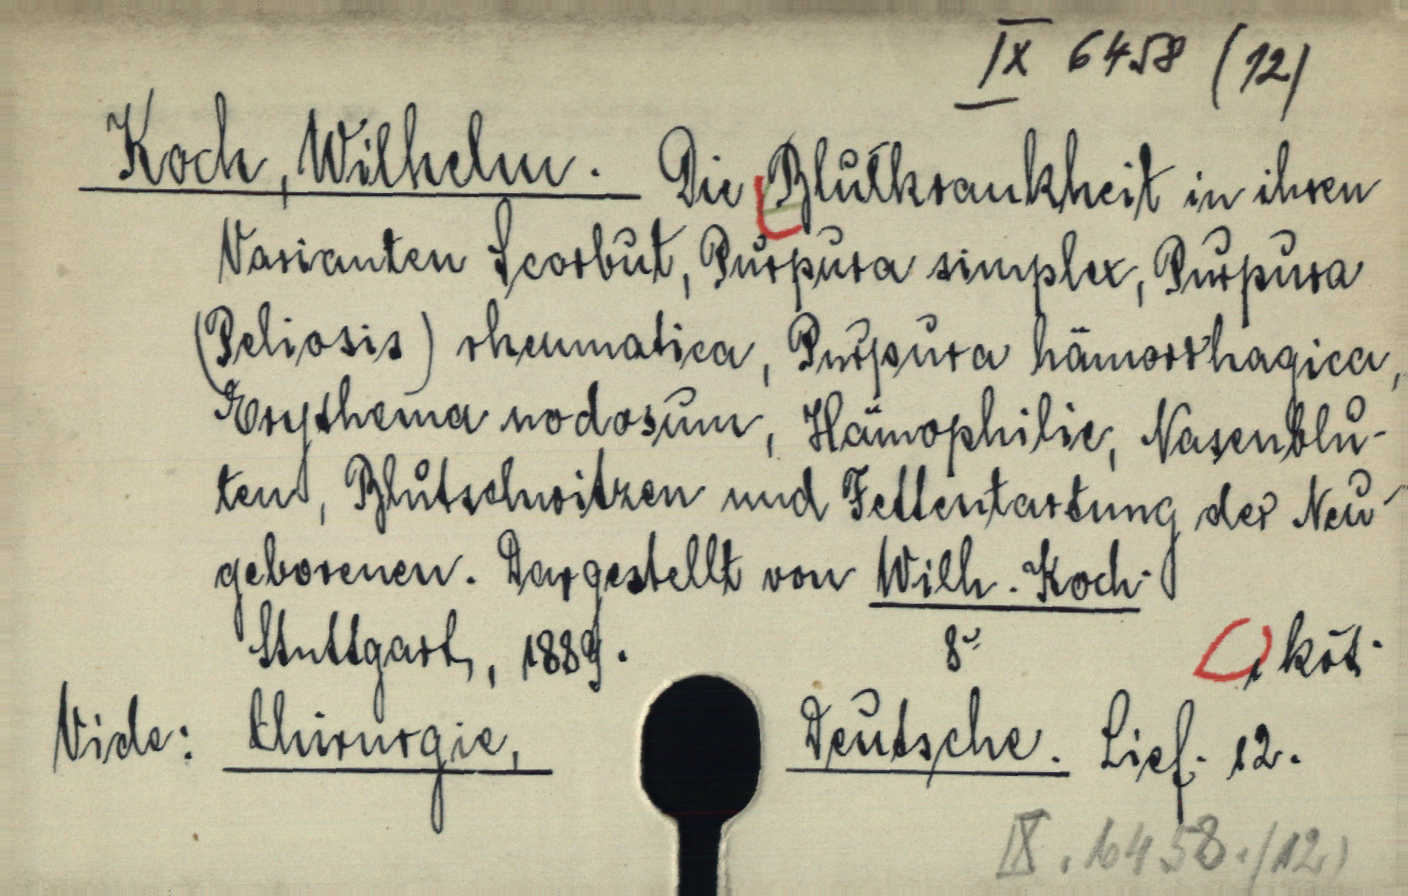 IX 6458 (12)
Koch, Wilhelm. Die Blutkrankheit in ihren
Varianten Scorbut, Purpura simplex, Purpura
(Peliosis) rheumatica, Purpura hämorrhagica,
Erythema nodosum, Hämophilie, Nasenblu-
ten, Blutschwitzen und Fettentartung der Neu-
geborenen. Dargestellt von Wilh. Koch.
Stuttgart, 1889. 8° 1 köt.
Vide: Chirurgie, Deutsche. Lief. 12.
IX. 6458. (12)